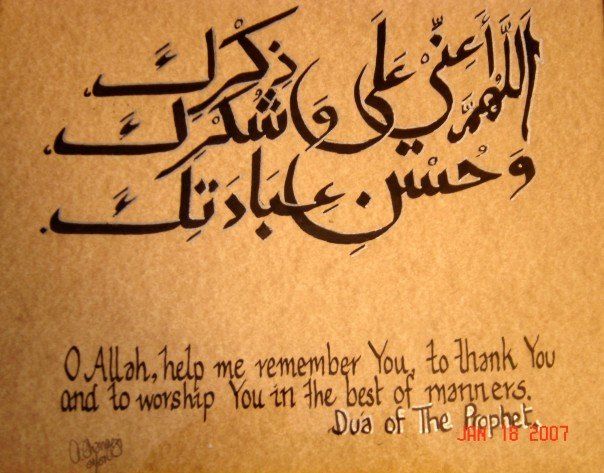 اللَّهُمَّ أَعِنِّي عَلَى ذِكْرِكَ
وَشُكْرِكَ
وَحُسْنِ عِبَادَتِكَ
O Allah, help me remember You, to thank You
and to worship You in the best of manners.
Dua of The Prophet.
JAN 18 2007